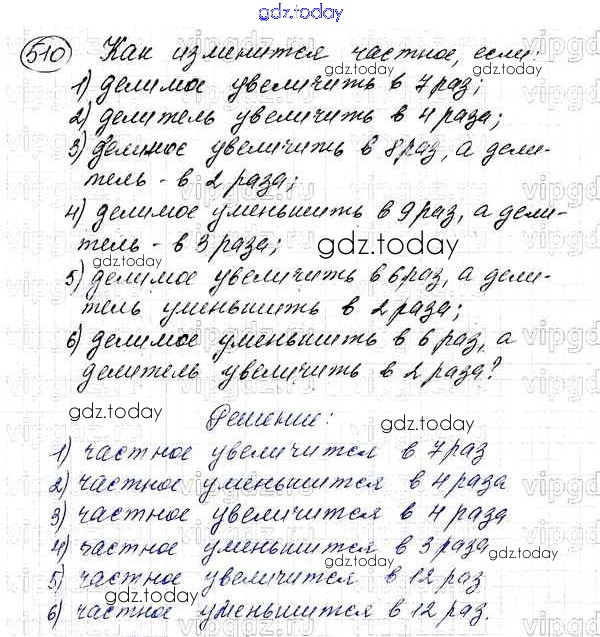 gdz.today
510 Как изменится частное, если:
gdz.today
1) делимое увеличить в 7 раз;
2) делитель увеличить в 4 раза;
gdz.today
3) делимое увеличить в 8 раз, а дели-
тель - в 2 раза;
4) делимое уменьшить в 9 раз, а дели-
тель - в 3 раза; gdz.today
gdz.today
5) делимое увеличить в 6 раз, а дели-
тель уменьшить в 2 раза;
6) делимое уменьшить в 6 раз, а
gdz.today
делитель увеличить в 2 раза?
gdz.today
Решение:
gdz.today
1) частное увеличится в 7 раз
2) частное уменьшится в 4 раза
3) частное увеличится в 4 раза
4) частное уменьшится в 3 раза
gdz.today
5) частное увеличится в 12 раз
gdz.today
6) частное уменьшится в 12 раз.